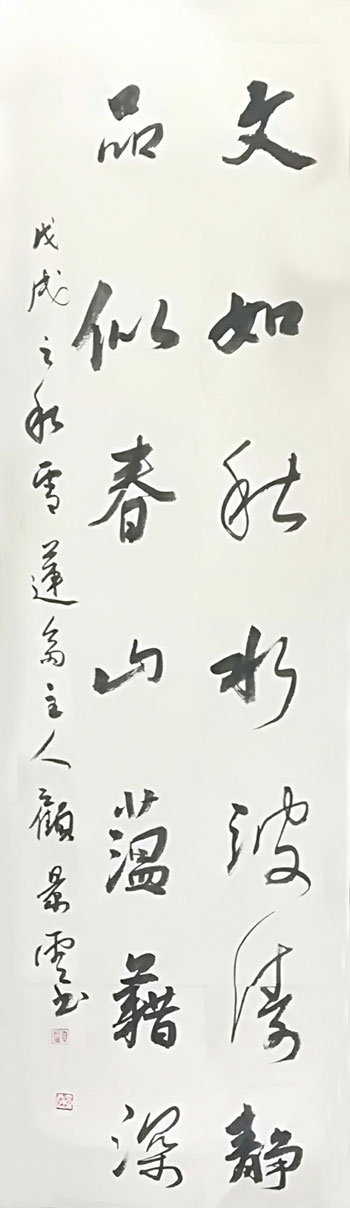 文如秋水波涛静
品似春山蕰藉深
戊戌之秋雪蓮斋主人顧景雲书